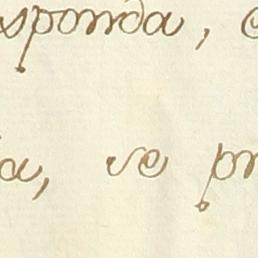 sponda,
a, se pr